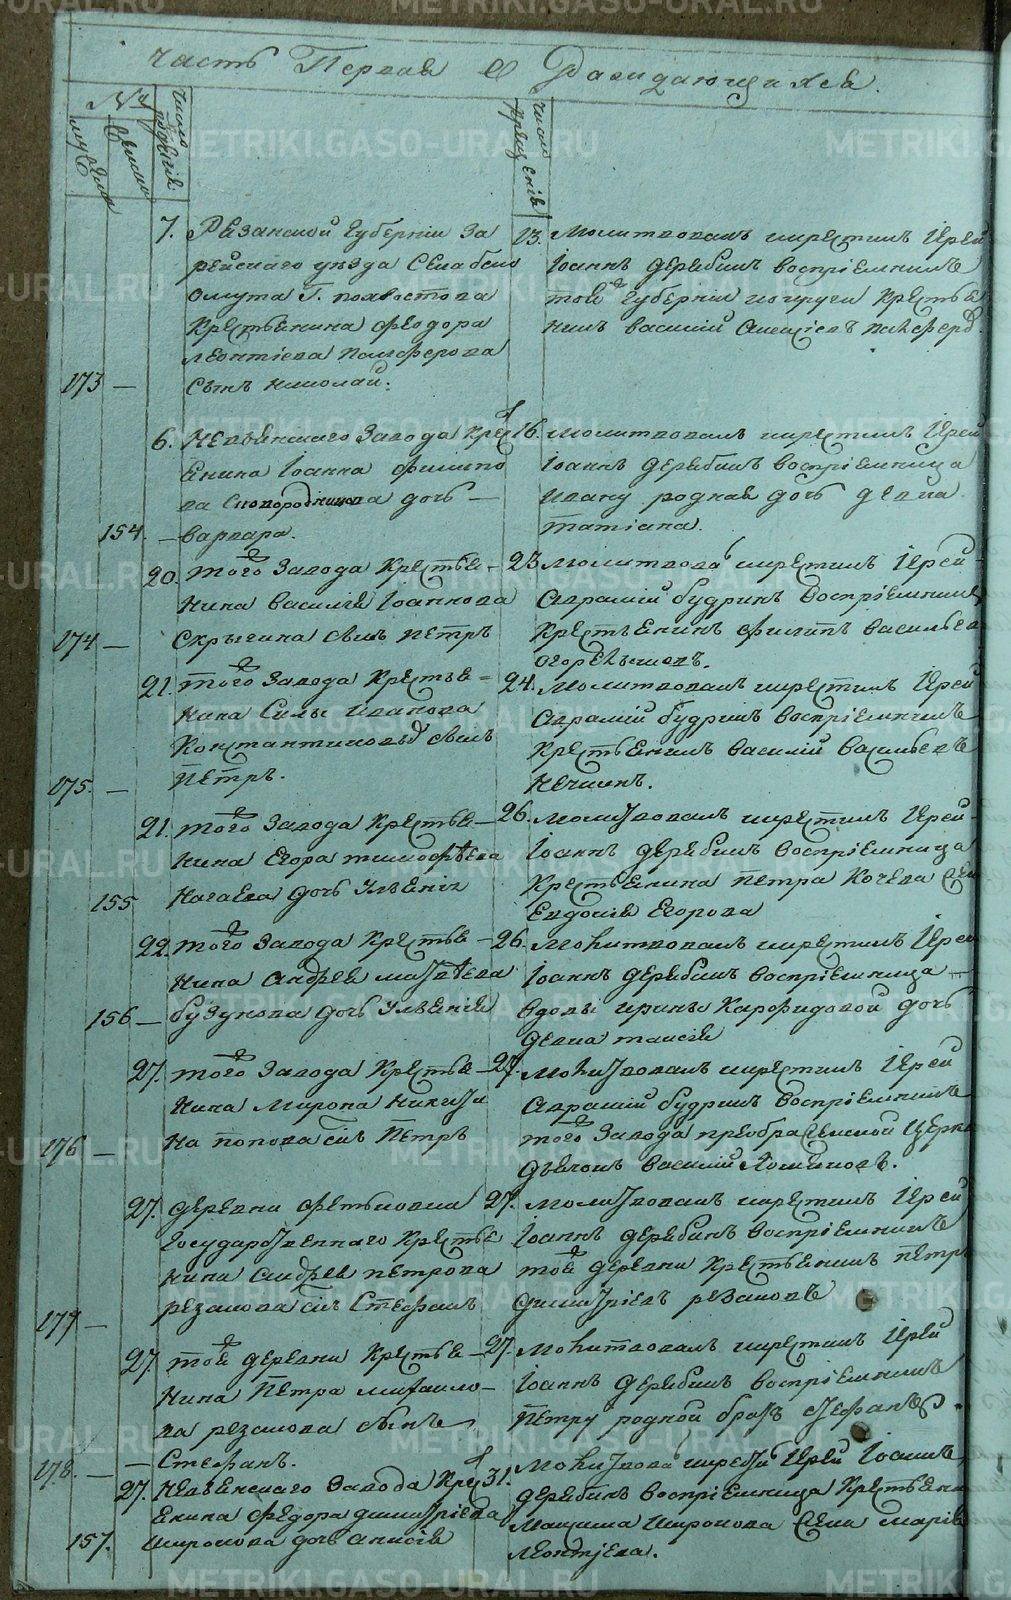 часть Первая О Раждающихся.
№
мужеска
женска
число рожденiя
число крещенiя
7. Рязанской Губернiи За
райскаго уезда Села бело
омута Г. похвостова
Крестьянина Феодора
Леонтiева Панферова
173 — Сынъ Николай.
13. Молитвовалъ и крестилъ Iерей
Iоаннъ Дерябинъ воспрiемникъ
той Губернiи и округи Крестья
нинъ василiй Алексiевъ Панферо
6. Невьянскаго Завода Крест
янина Iоанна Филипо
ва Сковородникова дочь —
154. — варвара.
16. Молитвовалъ и крестилъ Iерей
Iоаннъ Дерябинъ воспрiемница
Ивану родная дочь девка
татiана.
20. того Завода Крестья—
нина василiя Iоаннова
174 — Скрыгина сынъ Петръ
23. Молитвова и крестилъ Iерей
Аврамiй будринъ воспрiемникъ
Крестьянинъ Филипъ васильев
огорелышевъ.
21. того Завода Крестья=
нина Силы Иванова
Константиновыхъ сынъ
175. — Петръ.
24. Молитвовалъ и крестилъ Iерей
Аврамiй будринъ воспрiемникъ
Крестьянинъ василiй васильевъ
21. того Завода Крестья—
нина Егора тимофѣева
155 Нагаева дочь Улянiя
26. Молитвовалъ и крестилъ Iерей
Iоаннъ Дерябинъ воспрiемница
Крестьянина Петра Кочева жен
Евдокiя Егорова
22. того Завода Крестья—
нина Андрея матвѣева
156 — бузунова дочь Улянiя
26. Молитвовалъ и крестилъ Iерей
Iоаннъ Дерябинъ воспрiемница —
вдовы Ирины Карфидовой дочь
девка таисiя
27. того Завода Крестья—
нина Мирона Никити
176 — на попова сынъ Петръ
27. Молитвовалъ и крестилъ Iерей
Аврамiй будринъ воспрiемникъ
того Завода преображенской церкв
дьячокъ василiй
27. деревни Фетьковки
Государственнаго Крестья
нина Андрея петрова
177 — резанова сынъ Стефанъ
27. Молитвовалъ и крестилъ Iерей
Iоаннъ Дерябинъ воспрiемникъ
той деревни Крестьянинъ петръ
димитрiевъ резановъ
27. той деревни Крестья—
нина Петра михаило—
ва резанова сынъ
178. — — Стефанъ.
27. Молитвовалъ и крестилъ Iерей
Iоаннъ Дерябинъ воспрiемникъ
Петру родной братъ Стефанъ
27. Невьянскаго Завода Крест
янина Федора димитрiева
157. Широкова дочь Анисiя
31. Молитвова и крести Iерей Iоаннъ
дерябинъ воспрiемница Крестьяни
Максима Широкова жена Марiя
Леонтiева.
METRIKI.GASO-URAL.RU